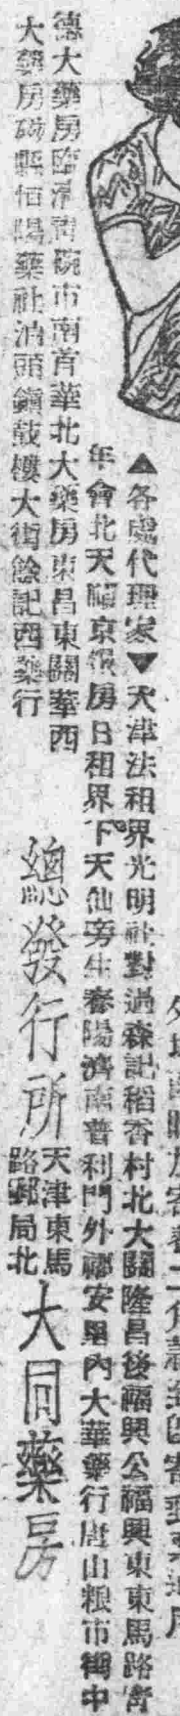 ▲各處代理家▼天津法租界光明社對過森記稻香村北大關隆昌後福興公福興東東馬路青
年會北天福京報房日租界下天仙旁生春陽濟南普利門外福安里內大華藥行唐山粮市街中
德大藥房臨清靑碗市南首華北大藥房東昌東關華西
大藥房磁縣恒陽藥社泊頭鎮鼓樓大街餘記西藥行
總發行所
天津東馬
路郵局北
大同藥房